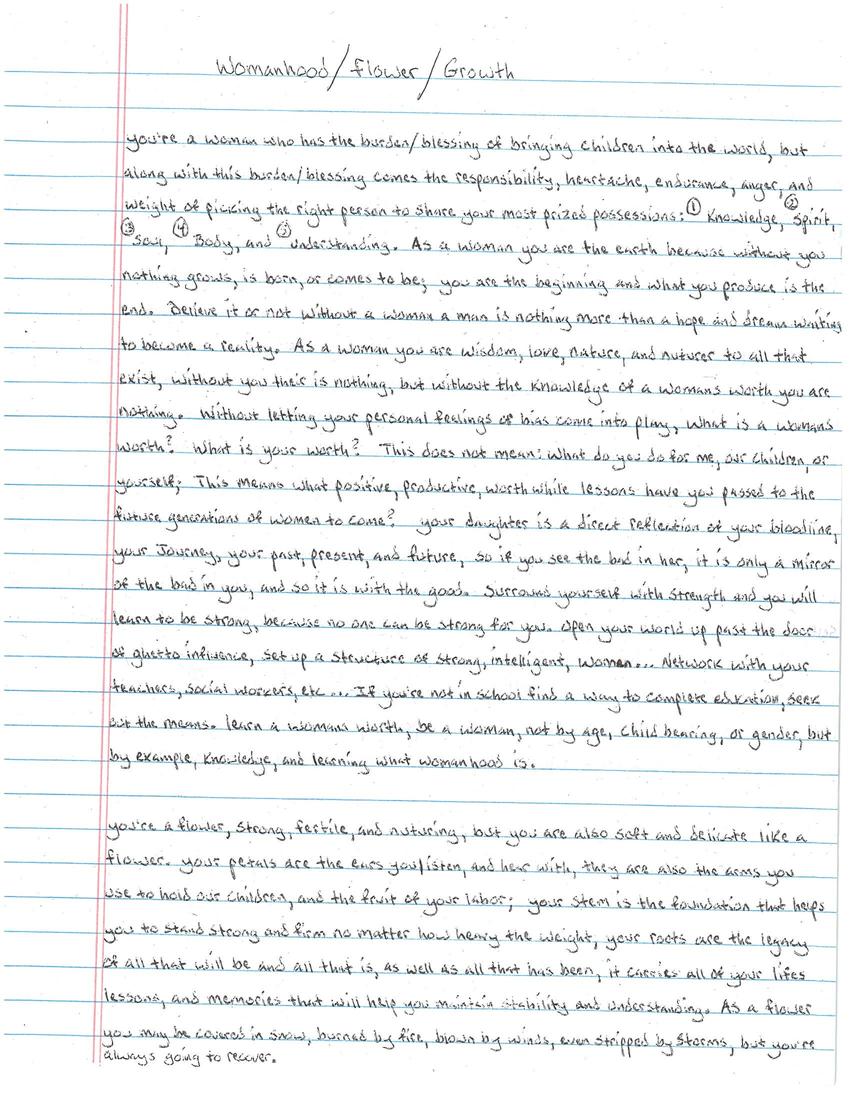 Womanhood/Flower/Growth
you're a woman who has the burden/blessing of bringing children into the world, but
along with this burden/blessing comes the responsibility, heartache, endurance, anger, and
weight of picking the right person to share your most prized possessions: ① Knowledge, ② Spirit,
③ Soul, ④ Body, and ⑤ understanding. As a woman you are the earth because without you
nothing grows, is born, or comes to be; you are the beginning and what you produce is the
end. Believe it or not without a woman a man is nothing more than a hope and dream waiting
to become a reality. As a woman you are wisdom, love, nature, and nuturer to all that
exist, without you their is nothing, but without the knowledge of a womans worth you are
nothing. Without letting your personal feelings of bias come into play, What is a womans
worth? What is your worth? This does not mean: What do you do for me, our children, or
yourself; This means what positive, productive, worth while lessons have you passed to the
future generations of women to come? your daughter is a direct reflection of your bloodline,
your Journey, your past, present, and future, so if you see the bad in her, it is only a mirror
of the bad in you, and so it is with the good. Surround yourself with strength and you will
learn to be strong, because no one can be strong for you. Open your world up past the door
of ghetto influence, set up a structure of strong, intelligent, women... Network with your
teachers, social workers, etc... If you're not in school find a way to complete education, seek
out the means. learn a womans worth, be a woman, not by age, child bearing, or gender, but
by example, knowledge, and learning what womanhood is.
you're a flower, strong, fertile, and nuturing, but you are also soft and delicate like a
flower. your petals are the ears you listen, and hear with, they are also the arms you
use to hold our children, and the fruit of your labor; your stem is the foundation that helps
you to stand strong and firm no matter how heavy the weight, your roots are the legacy
of all that will be and all that is, as well as all that has been, it carries all of your lifes
lessons, and memories that will help you maintain stability and understanding. As a flower
you may be covered in snow, burned by fire, blown by winds, even stripped by storms, but you're
always going to recover.